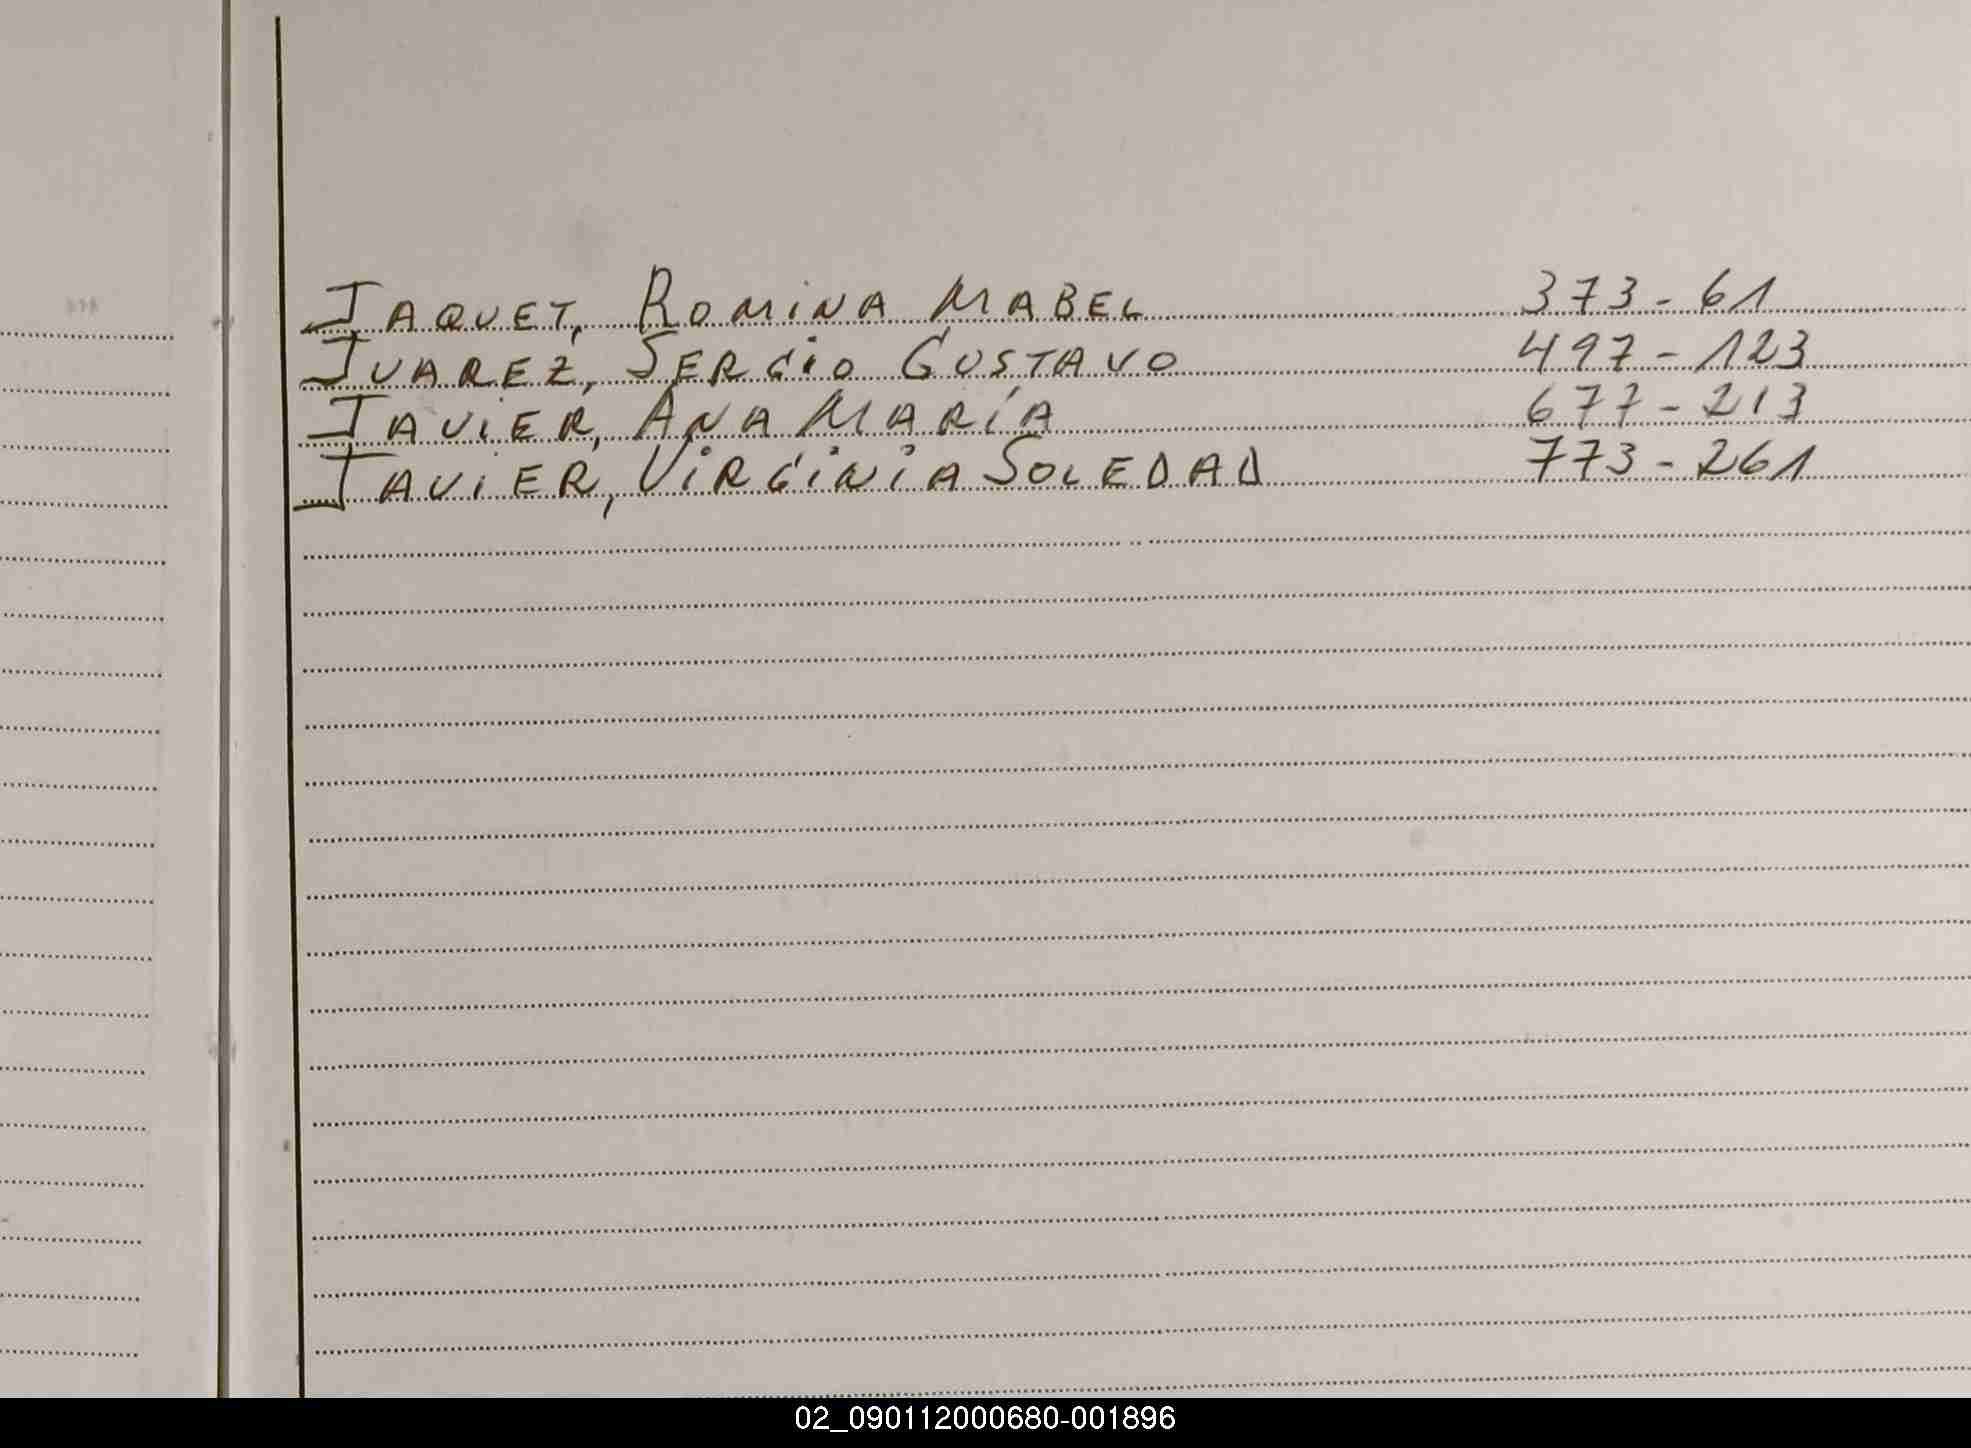 JAQUET, ROMINA MABEL 373-61
JUAREZ, SERGIO GUSTAVO 497-123
JAVIER, ANA MARÍA 677-213
JAVIER, VIRGINIA SOLEDAD 773-261
02_090112000680-001896